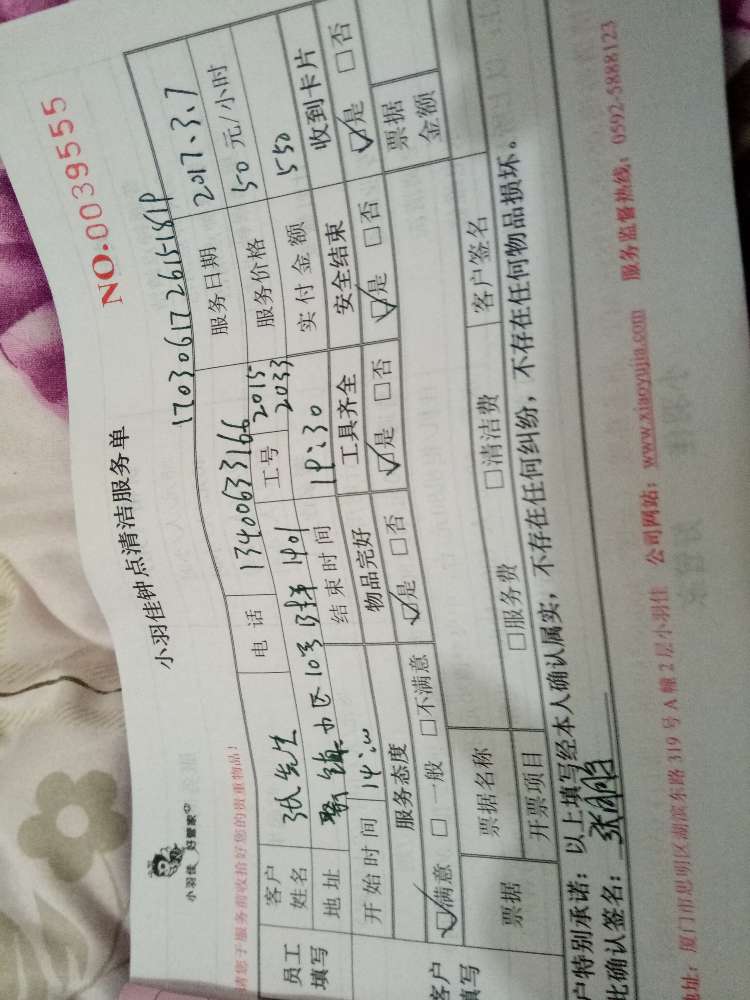 小羽佳 好管家
小羽佳钟点清洁服务单
NO.0039555
请您于服务前收拾好您的贵重物品!
员工填写
客户姓名 张先生 电话 13400633166 服务日期 2017.3.7
地址 10号 1401 工号 2015 2033 服务价格 50 元/小时
开始时间 14:00 结束时间 19:30 实付金额 550
客户填写
服务态度 物品完好 工具齐全 安全结束 收到卡片
☑满意 □一般 □不满意 ☑是 □否 ☑是 □否 ☑是 □否 ☑是 □否
票据 票据名称 客户签名 票据金额
开票项目 □服务费 □清洁费
户特别承诺:以上填写经本人确认属实,不存在任何纠纷,不存在任何物品损坏。
此确认签名:
地址:厦门市思明区湖滨东路 319 号 A 幢 2 层小羽佳 公司网站:www.xiaoyujia.com 服务监督热线:0592-5888123